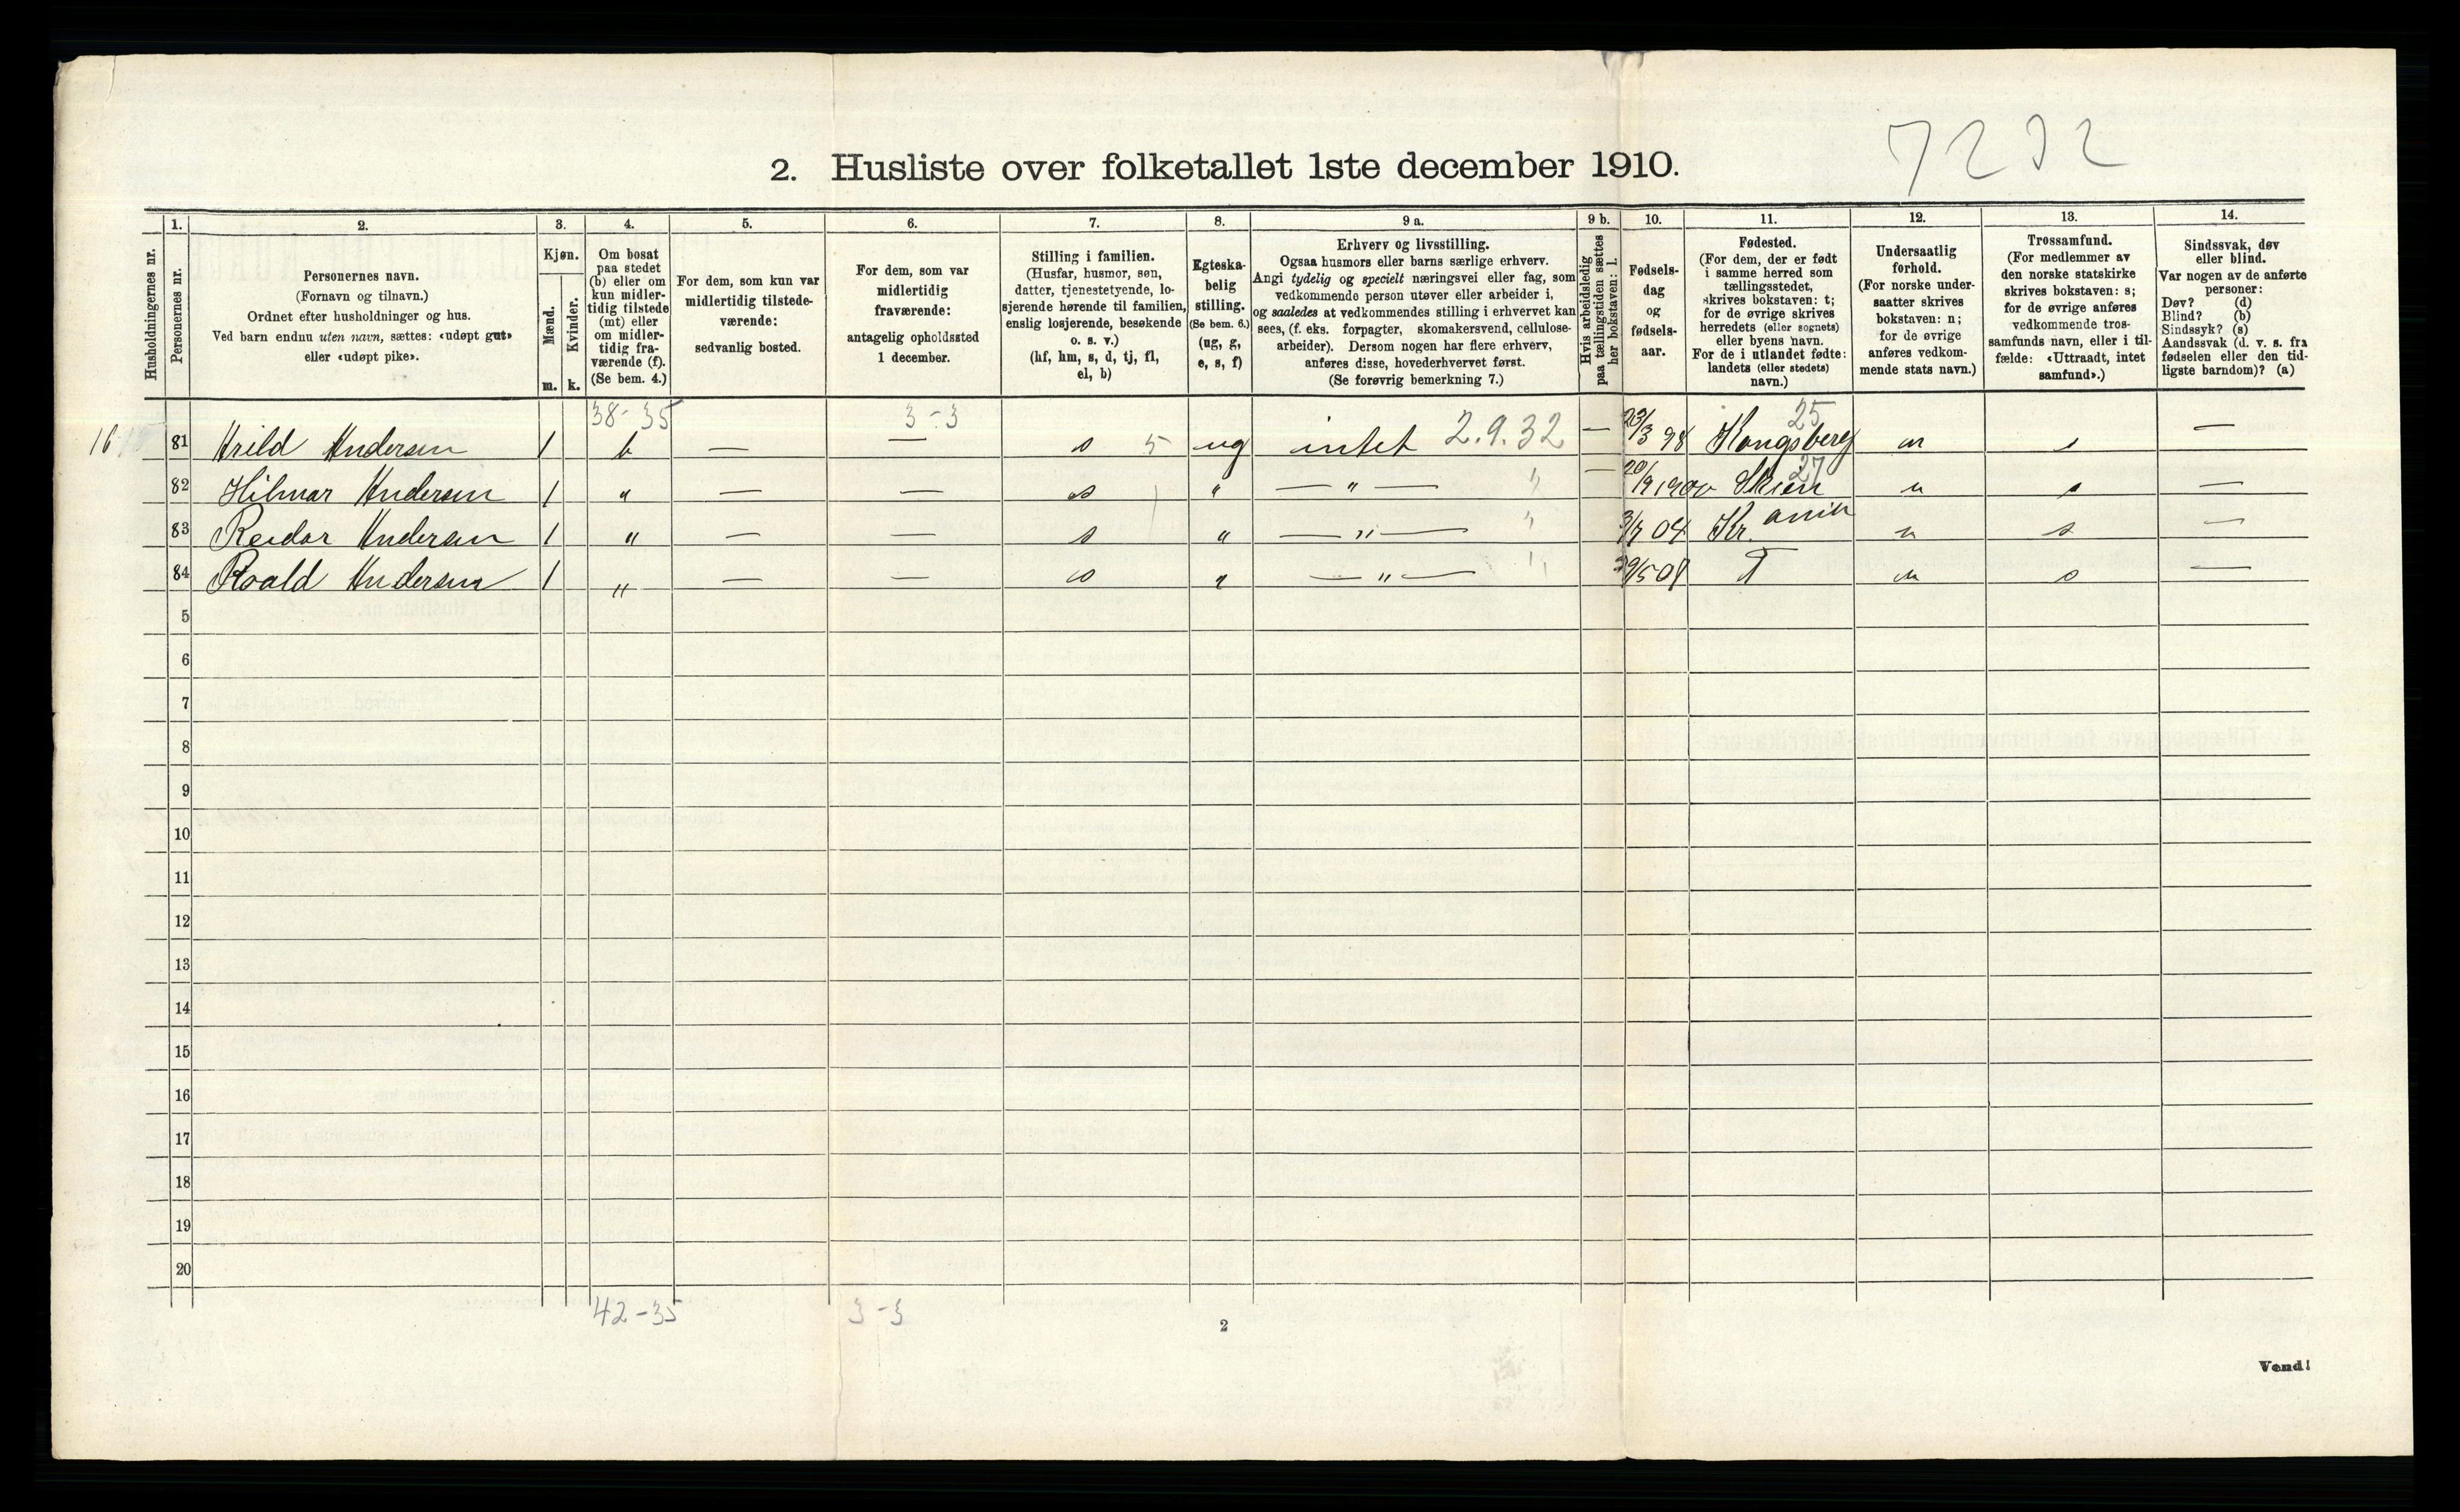 7232
2. Husliste over folketallet 1ste december 1910.
Husholdningernes nr.
1.
Personernes nr.
2.
Personernes navn.
(Fornavn og tilnavn.)
Ordnet efter husholdninger og hus.
Ved barn endnu uten navn, sættes: «udøpt gut»
eller «udøpt pike».
3.
Kjøn.
Mænd.
Kvinder.
m. k.
4.
Om bosat
paa stedet
(b) eller om
kun midler-
tidig tilstede
(mt) eller
om midler-
tidig fra-
værende (f).
(Se bem. 4.)
5.
For dem, som kun var
midlertidig tilstede-
værende:
sedvanlig bosted.
6.
For dem, som var
midlertidig
fraværende:
antagelig opholdssted
1 december.
7.
Stilling i familien.
(Husfar, husmor, søn,
datter, tjenestetyende, lo-
sjerende hørende til familien,
enslig losjerende, besøkende
o. s. v.)
(hf, hm, s, d, tj, fl,
el, b)
8.
Egteska-
belig
stilling.
(Se bem. 6.)
(ug, g,
e, s, f)
9 a.
Erhverv og livsstilling.
Ogsaa husmors eller barns særlige erhverv.
Angi tydelig og specielt næringsvei eller fag, som
vedkommende person utøver eller arbeider i,
og saaledes at vedkommendes stilling i erhvervet kan
sees, (f. eks. forpagter, skomakersvend, cellulose-
arbeider). Dersom nogen har flere erhverv,
anføres disse, hovederhvervet først.
(Se forøvrig bemerkning 7.)
9 b.
Hvis arbeidsledig
paa tællingstiden sættes
her bokstaven: l.
10.
Fødsels-
dag
og
fødsels-
aar.
11.
Fødested.
(For dem, der er født
i samme herred som
tællingsstedet,
skrives bokstaven: t;
for de øvrige skrives
herredets (eller sognets)
eller byens navn.
For de i utlandet fødte:
landets (eller stedets)
navn.)
12.
Undersaatlig
forhold.
(For norske under-
saatter skrives
bokstaven: n;
for de øvrige
anføres vedkom-
mende stats navn.)
13.
Trossamfund.
(For medlemmer av
den norske statskirke
skrives bokstaven: s;
for de øvrige anføres
vedkommende tros-
samfunds navn, eller i til-
fælde: «Uttraadt, intet
samfund».)
14.
Sindssvak, døv
eller blind.
Var nogen av de anførte
personer:
Døv? (d)
Blind? (b)
Sindssyk? (s)
Aandssvak (d. v. s. fra
fødselen eller den tid-
ligste barndom)? (a)
38-35 3-3 25
16 81 Arild Andersen 1 b — — s 5 ug intet 2.9.32 — 23/3 98 Kongsberg n s —
27
82 Hilmar Andersen 1 " — — s " — " — " — 20/9 1900 Skien n s —
83 Reidar Andersen 1 " — — s " — " — " 3/7 04 Kr.ania n s —
84 Roald Andersen 1 " — — s " — " — " 29/5 08 T n s —
5
6
7
8
9
10
11
12
13
14
15
16
17
18
19
20
42-35 3-3
2
Vend!